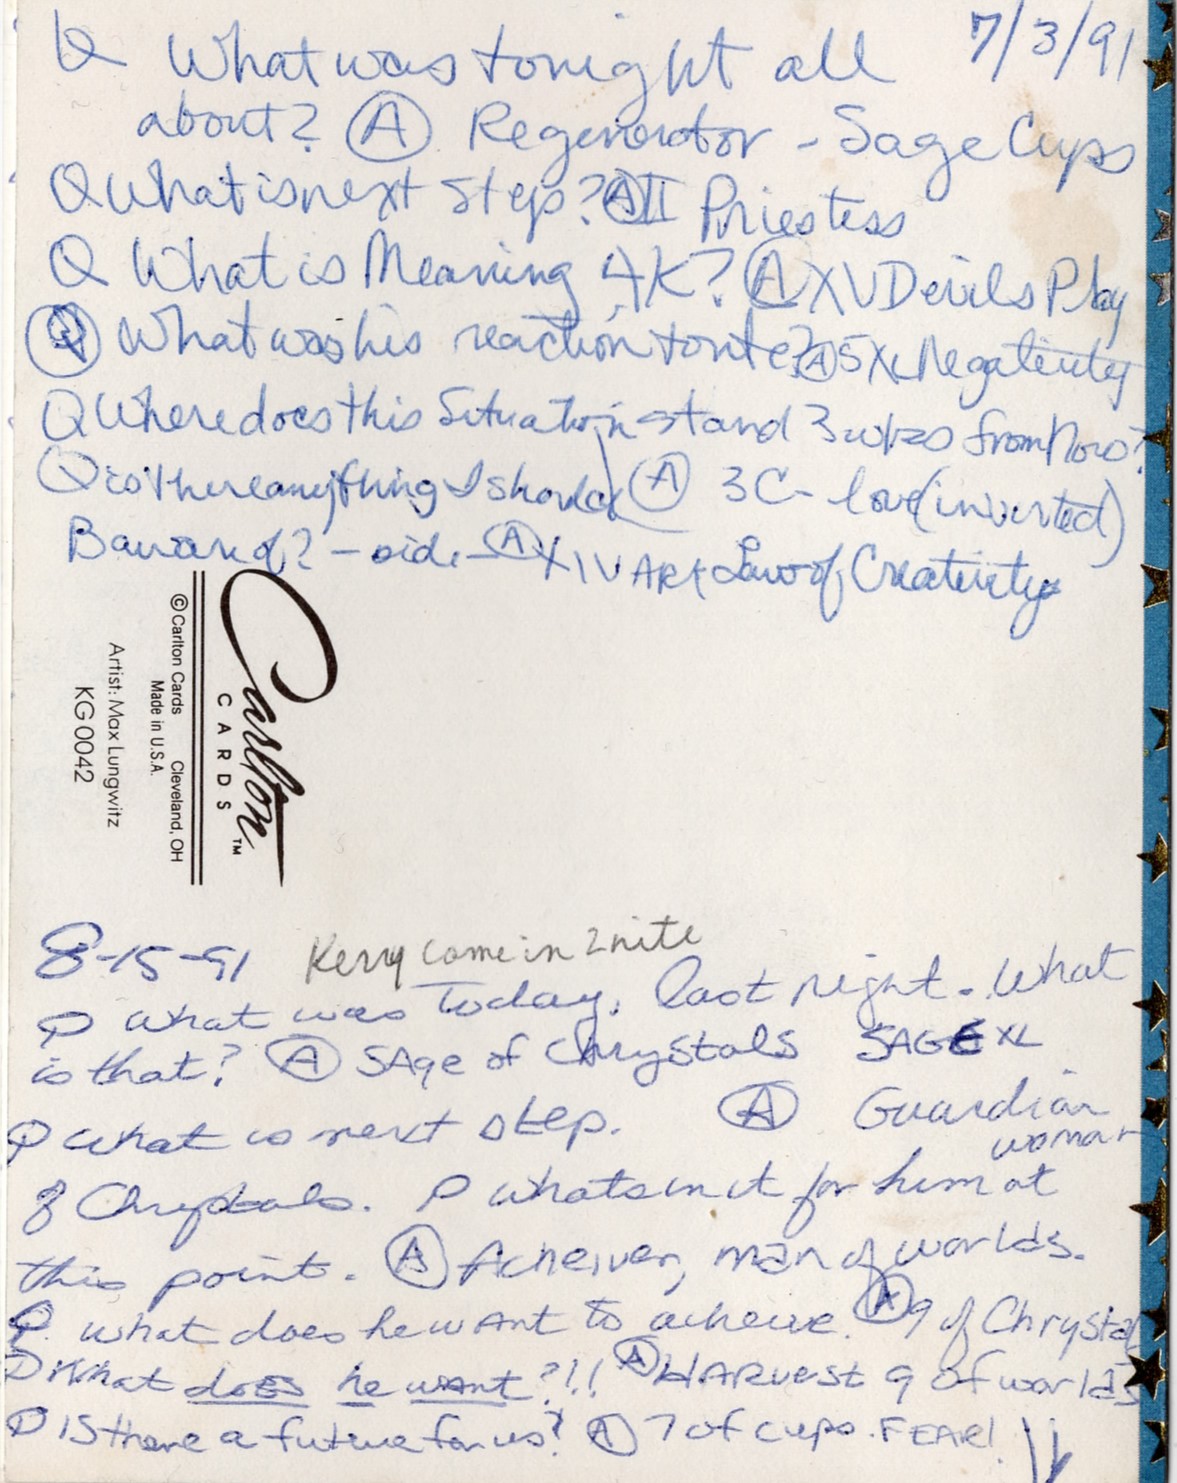 Q What was tonight all 7/3/91
about? A Regenerator - Sage Cups
Q What is next Step? A II Priestess
Q What is Meaning 4K? A XV Devils Play
Q What was his reaction A 5 XL Negativity
Q Where does this Situation stand 3 wks from Now?
Q is there anything I should A 3C - love (inverted)
Bawar of? - A XIV ARt Law of Creativity
Carlton
CARDS™
© Carlton Cards Cleveland, OH
Made in U.S.A.
Artist: Max Lungwitz
KG 0042
8-15-91 Kerry came in 2nite
Q What was Today, last night. What
is that? A SAge of Chrystals SAGE XL
Q What is next step. A Guardian
woman
of Chrystals. Q whats in it for him at
this point. A Acheiver, man of worlds.
Q. What does he wAnt to acheive. A 9 of Chrystal
Q What does he want?!! A HARvest 9 of worlds
Q IS there a future for us? A 7 of cups. FEAR!